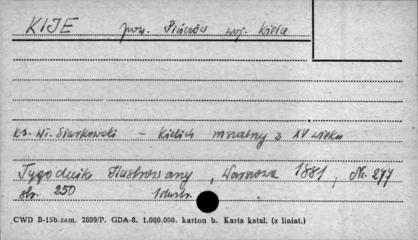 KIJE pow. Pińczów woj. Kielce
ks. Wł. Siarkowski - Kielich mszalny z XV wieku
Tygodnik Illustrowany, Warszawa 1881, Nr. 277
str. 250 1 ilustr.
CWD B-15b.zam. 2899/P. GDA-8. 1.000.000. karton b. Karta katal. (z liniat.)